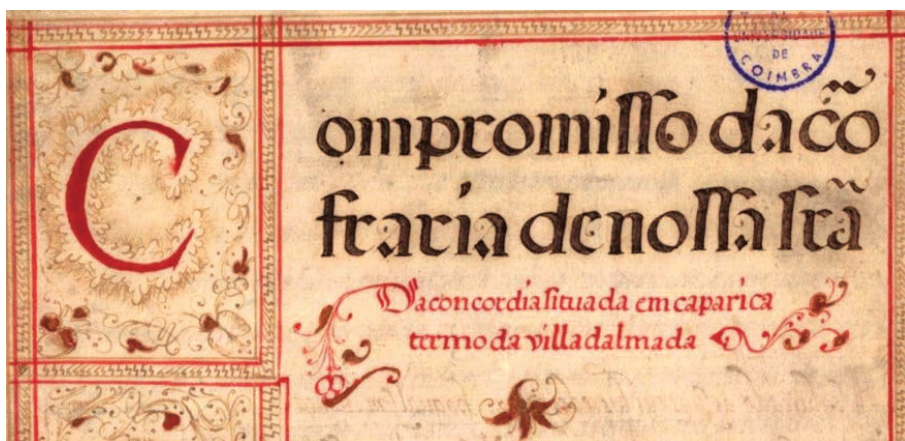 DA
UNIVERSIDADE
DE
COIMBRA
Compromiſſo da cõ
fraria de noſſa ſrã
Da concordia ſituada em caparica
termo da villa dalmada